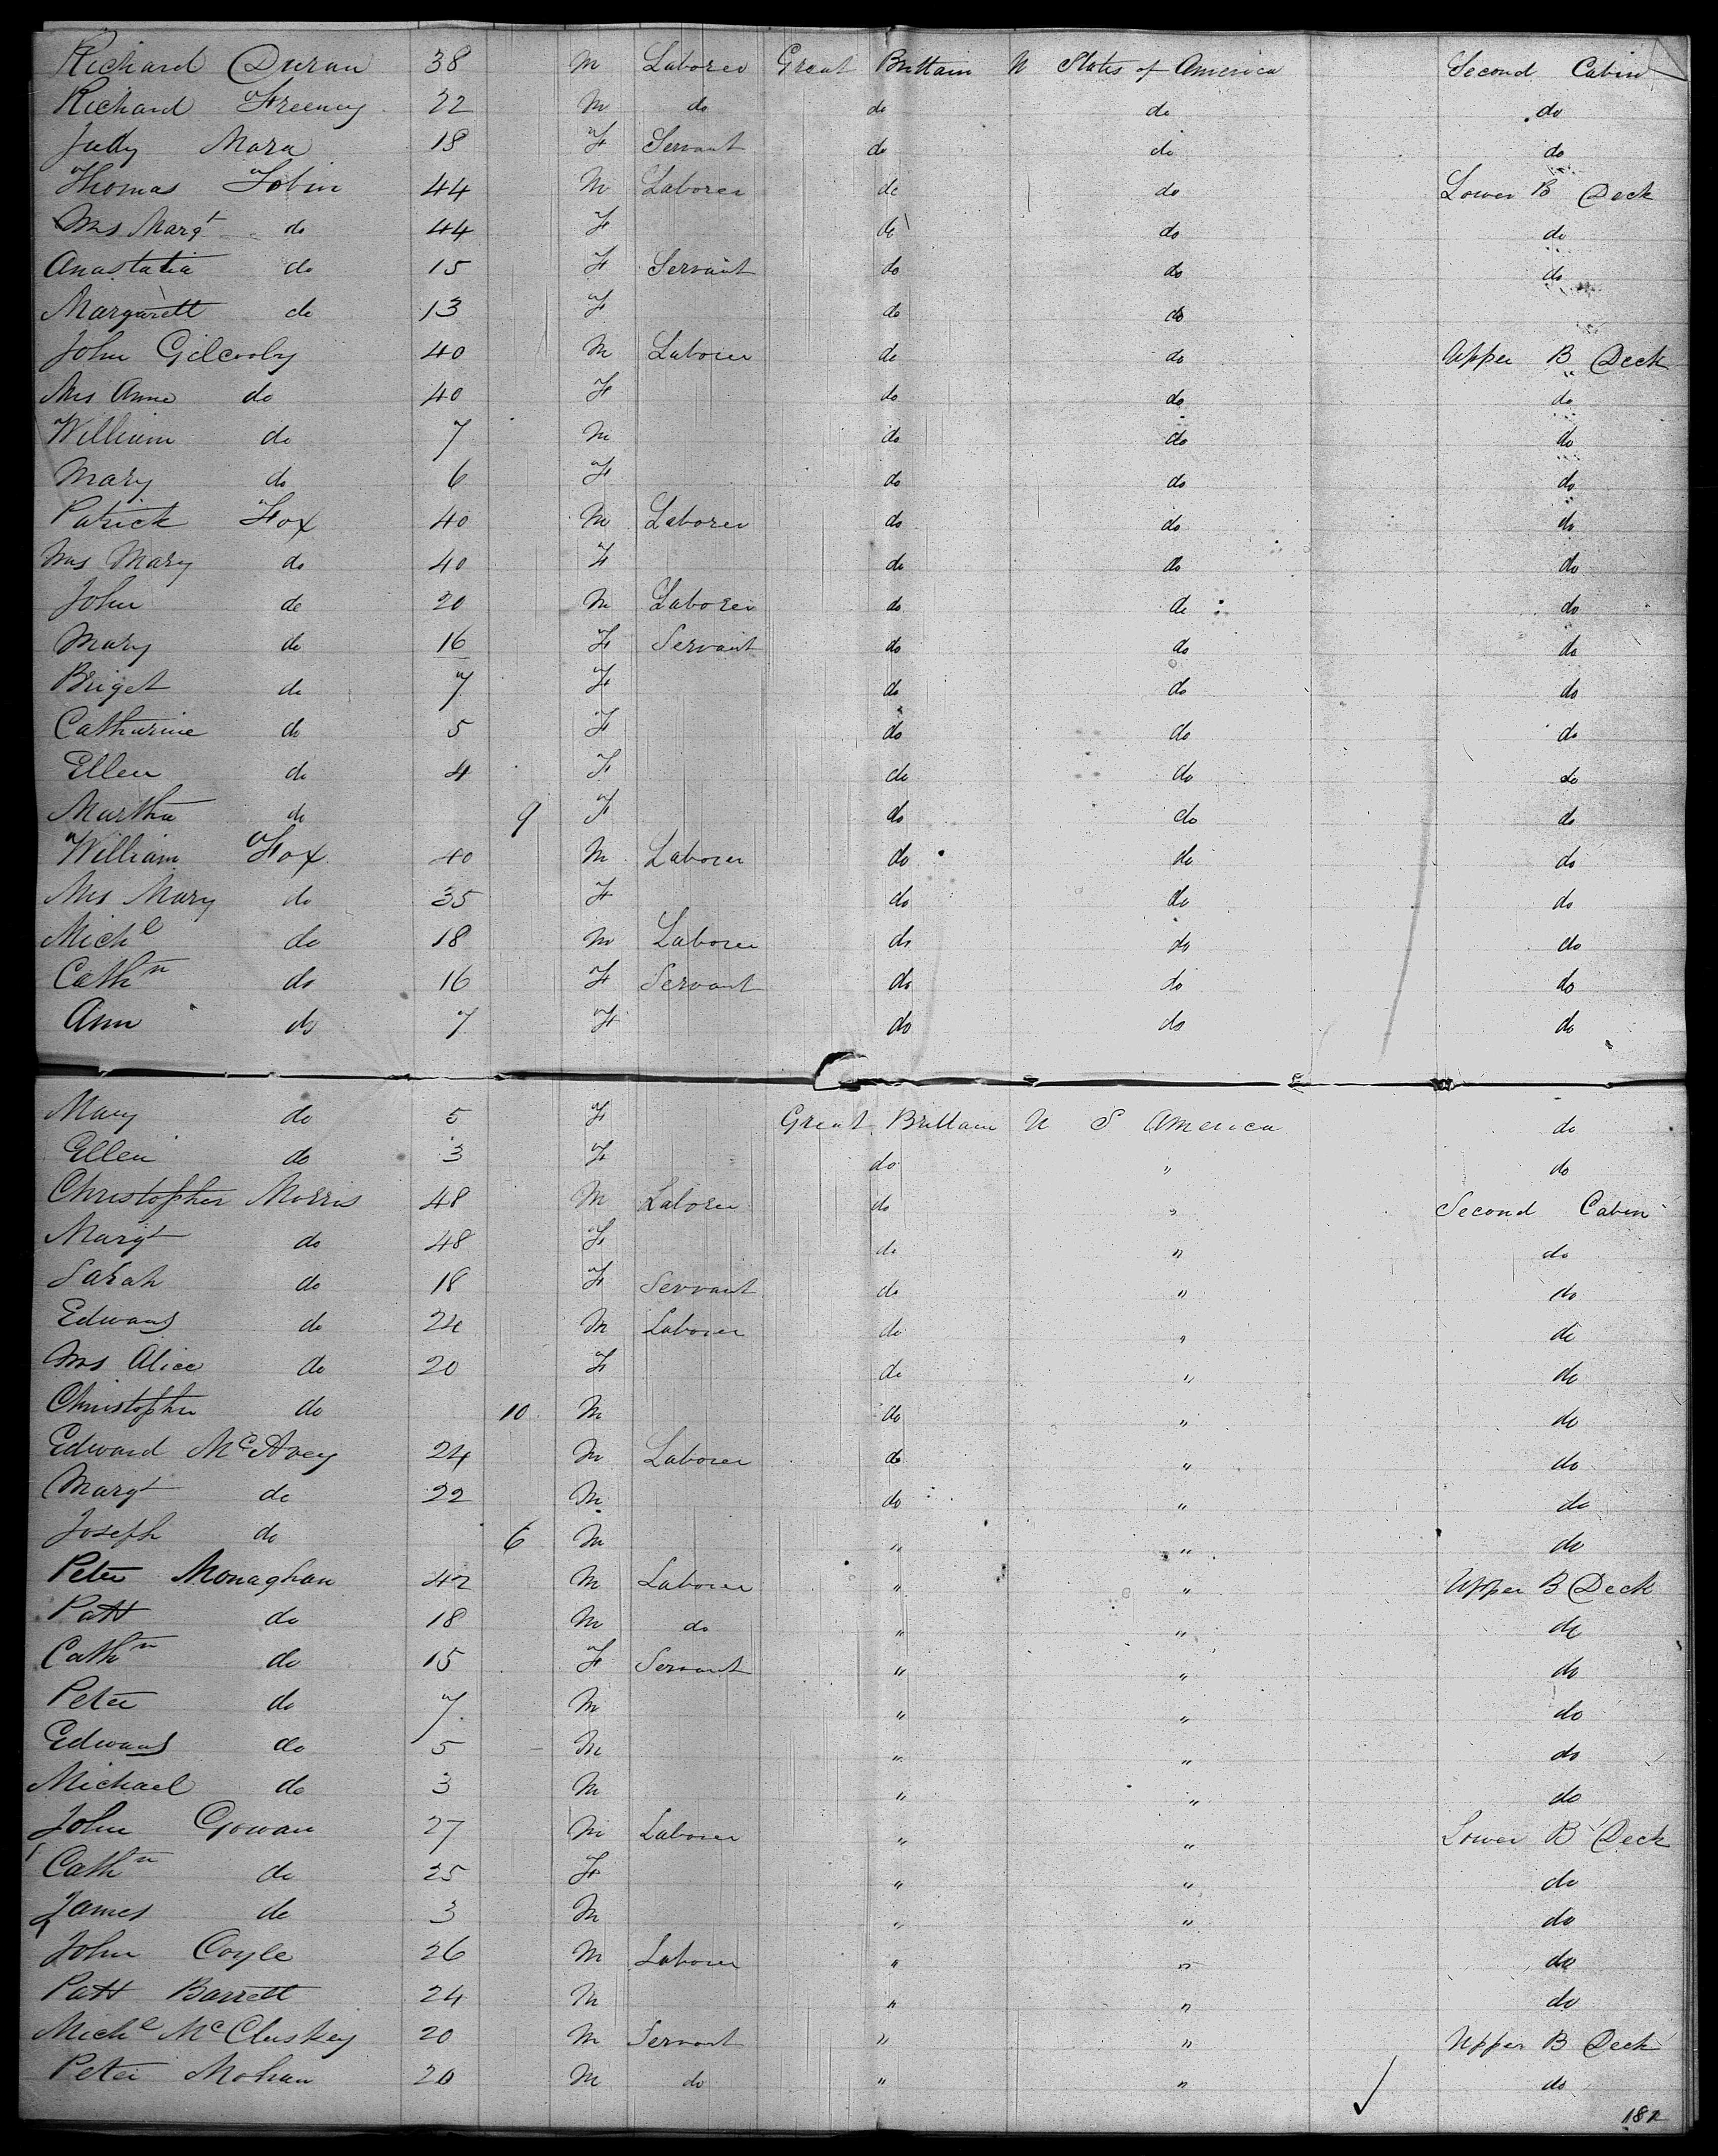 Richard Duran 38 M Laborer Great Brittain U States of America Second Cabin
Richard Freeney 22 M do do do do
Judy Mara 18 F Servant do do do
Thomas Tobin 44 M Laborer do do Lower B Deck
Mrs Margt do 44 F do do do
Anastatia do 15 F Servant do do do
Margarett do 13 F do do
John Gilcooly 40 M Laborer do do Upper B Deck
Mrs Anne do 40 F do do do
William do 7 M do do do
Mary do 6 F do do do
Patrick Fox 40 M Laborer do do do
Mrs Mary do 40 F do do do
John do 20 M Laborer do do do
Mary do 16 F Servant do do do
Briget do 7 F do do do
Catharine do 5 F do do do
Ellen do 4 F do do do
Martha do 9 F do do do
William Fox 40 M Laborer do do do
Mrs Mary do 35 F do do do
Michl do 18 M Laborer do do do
Cathn do 16 F Servant do do do
Ann do 7 F do do do
Mary do 5 F Great Brittain U S America do
Ellen do 3 F do " do
Christopher Morris 48 M Laborer do " Second Cabin
Margt do 48 F do " do
Sarah do 18 F Servant do " do
Edward do 24 M Laborer do " do
Mrs Alice do 20 F do " do
Christopher do 10 M do " do
Edward McAvey 24 M Laborer do " do
Margt do 22 M do " do
Joseph do 6 M " " do
Peter Monaghan 42 M Laborer " " Upper B Deck
Patt do 18 M do " " do
Cathn do 15 F Servant " " do
Peter do 7 M " " do
Edward do 5 M " " do
Michael do 3 M " " do
John Gowan 27 M Laborer " " Lower B Deck
Cathn do 25 F " " do
James do 3 M " " do
John Coyle 26 M Laborer " " do
Patt Barrett 24 M " " do
Michl McCluskey 20 M Servant " " Upper B Deck
Peter Mohan 20 M do " " do
182